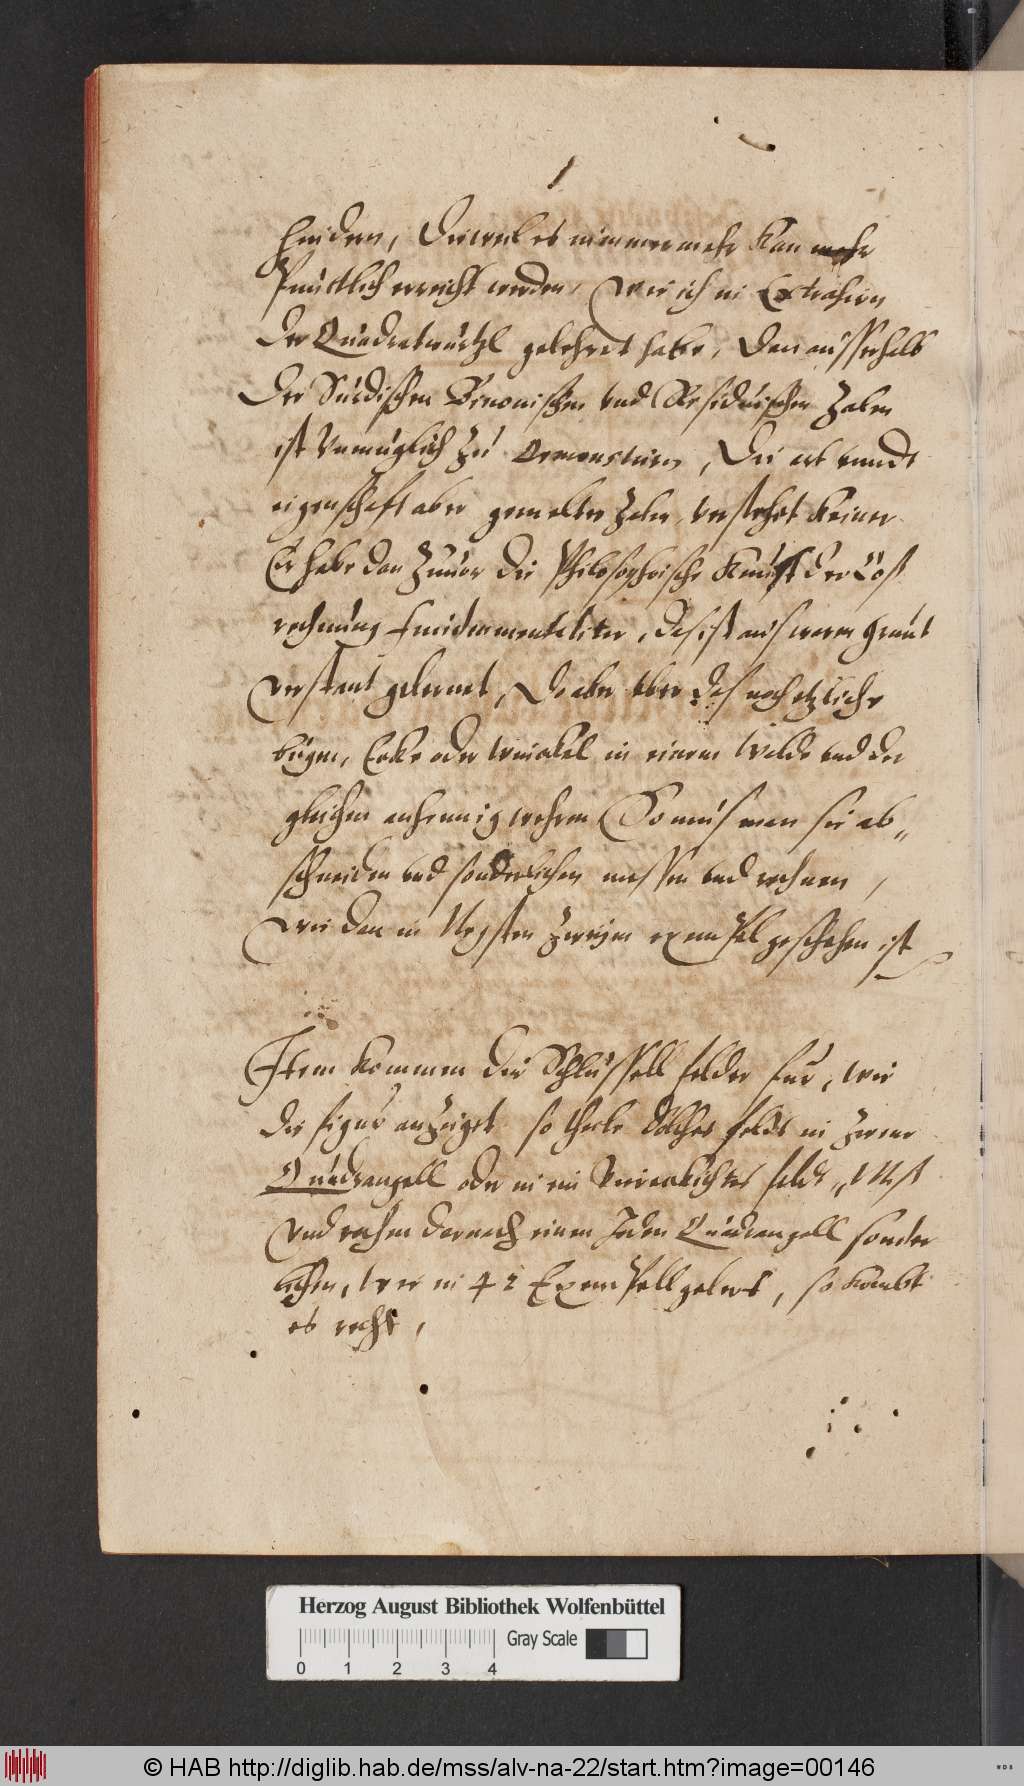 hinder, dieweil es nimmermehr kan mehr
Punctlich erreicht werden, wie ich in Extrahirn
der Quadratwurtzl gelehret habe, dan ausserhalb
der Surdischen Binomischen vnd Residuischen Zalen
ist vnmuglich zu demonstrirn, die art vnndt
eigenschafft aber gemelter Zalen verstehet keiner
Er habe dan zuuor die Philosophische Kunst der Coß
rechnung fundamentaliter, das ist aus waren grunt
verstant gelernet, Do aber vber das noch etzliche
bugen, Ecke oder winckel in einem Velde vnd der
gleichen anhennig wehren So mus man sie ab„
schneiden vnd sonderlichen messen vnd rechnen,
wie dan in negsten zweyen exempel geschehen ist
Item kommen die Schlussell felder fur, wie
die figur anzeiget so theile solches feldt in zwene
Quadrangell oder in ein viereckichtes feldt, Mist
vnd rechen darnach einen Jeden Quadrangell sonder
lichen, wie in 42 Exempell gelert, so kombt
es recht,
Herzog August Bibliothek Wolfenbüttel
Gray Scale
0 1 2 3 4
© HAB http://diglib.hab.de/mss/alv-na-22/start.htm?image=00146